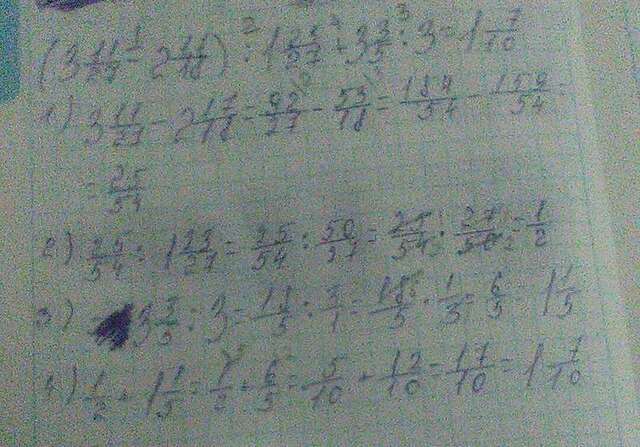 (3 11/27 - 2 17/18) : 1 23/27 + 3 3/5 : 3 = 1 7/10
1) 3 11/27 - 2 17/18 = 92/27 - 53/18 = 184/54 - 159/54 =
= 25/54
2) 25/54 : 1 23/27 = 25/54 : 50/27 = 25/54 · 27/50 = 1/2
3) 3 3/5 : 3 = 18/5 : 3/1 = 18/5 · 1/3 = 6/5 = 1 1/5
4) 1/2 + 1 1/5 = 1/2 + 6/5 = 5/10 + 12/10 = 17/10 = 1 7/10